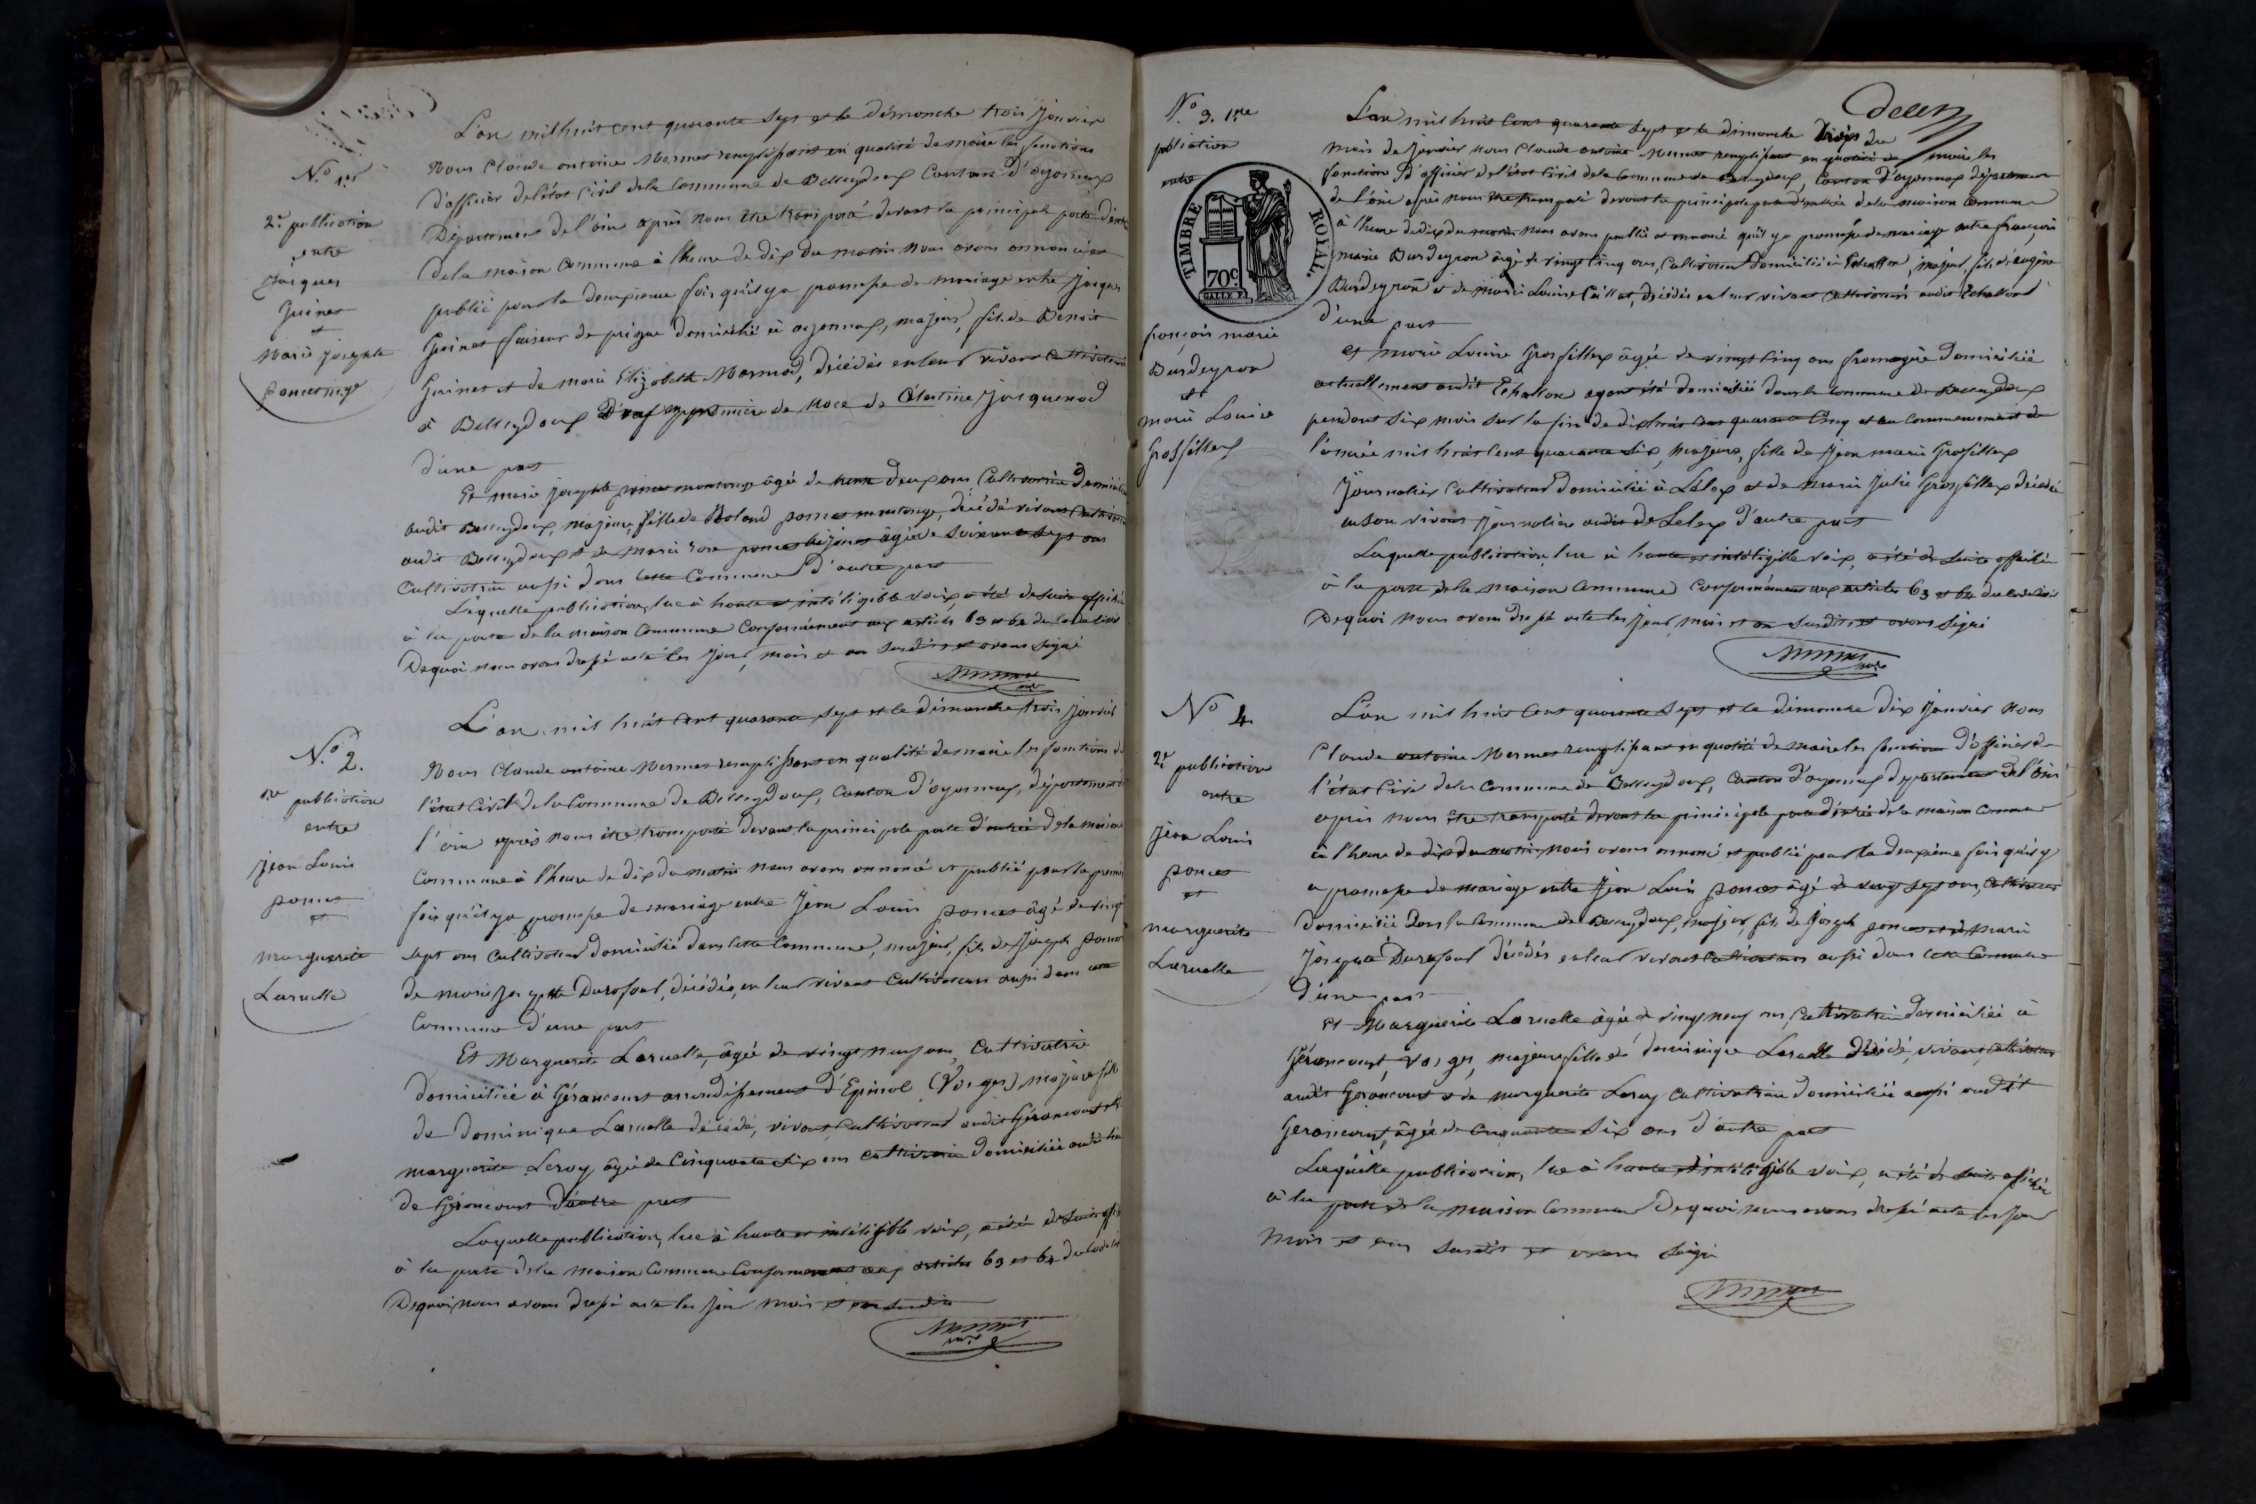 N.o 1er
2e publication
entre
Jacques
Guinet
et
Marie josephte
poncet mge
L'an mil huit cent quarante sept et le dimanche trois Janvier
Nous Claude antoine Mermet remplissant en qualité de maire les fonctions
d'officier de l'état Civil de la Commune de Belleydoux Canton d'oyonnax
Département de l'ain après nous être transporté devant la principale porte d'entrée
de la maison Commune à l'heure de dix du matin nous avons annoncé et
publié pour la deuxieme fois qu'il y a promesse de mariage entre Jacques
Guinet faiseur de peigne domicilié à oyonnax, majeur, fils de Benoit
Guinet et de marie Elizabeth Mermod, décédés en leur vivant cultivateurs
à Belleydoux veuf en première de noce de Célestine Jacquenod
d'une part
Et marie josephte poncet montange âgée de trente deux ans, Cultivatrice domiciliée
audit Belleydoux, majeure, fille de Roland poncet montange, décédé vivant Cultivateur
audit Belleydoux et de marie rose poncet âgée de soixante sept ans
Cultivatrice aussi dans cette Commune d'autre part
Laquelle publication, lue à haute et intéligible voix, a été de suite affichée
à la porte de la maison Commune Conformément aux articles 63 et 64 du Code Civil
De quoi nous avons dressé acte les jour, mois et an susdits et avons signé
Mermet
N.o 2.
1re publiction
entre
jean Louis
poncet
et
marguerite
Laruelle
L'an mil huit cent quarante sept et le dimanche trois janvier
Nous Claude antoine Mermet remplissant en qualité de maire les fonctions de
l'état Civil de la Commune de Belleydoux, Canton d'oyonnax, département de
l'ain après nous être transporté devant la principale porte d'entrée de la maison
Commune à l'heure de dix du matin nous avons annoncé et publié pour la premiè
fois qu'il y a promesse de mariage entre Jean Louis poncet âgé de vingt
sept ans Cultivateur domicilié dans cette Commune, majeur, fils de Joseph poncet
de marie josephte Durafour, décédés, en leur vivant Cultivateurs aussi dans cette
Commune d'une part
Et Marguerite Laruelle, âgée de vingt neuf ans, Cultivatrice
domiciliée à Gérancourt arrondissement d'Epinal (Vosges) majeure fille
de Dominique Laruelle décédé, vivant, Cultivateur audit Gérancourt et
marguerite Leroy âgée de Cinquante six ans cultivatrice domiciliée audit lieu
de Gérancourt d'autre part
Laquelle publication, lue à haute et intéligible voix, a été de suite affi
à la porte de la maison Commune Conformément aux articles 63 et 64 du Code Civil
De quoi nous avons dressé acte les jour mois et an susdits
Mermet
N.o 3. 1re
publiation
entre
TIMBRE ROYAL.
70c.
françois marie
Burdeyron
et
marie Louise
Grosfillex
L'an mil huit cent quarante sept et le dimanche trois du
mois de Janvier nous Claude antoine Mermet remplissant en qualité de maire les
fonctions d'officier de l'état Civil de la Commune de Belleydoux, Canton d'oyonnax département
de l'ain après nous être transporté devant la principale porte d'entrée de la maison Commune
à l'heure de dix du matin nous avons publié et annoncé qu'il y a promesse de mariage entre françois
marie Burdeyron âgé de vingt cinq ans, Cultivateur domicilié à Echallon, majeur, fils d'eugène
Burdeyron et de marie Louise, décédés en leur vivant Cultivateurs audit Echallon
d'une part
et marie Louise Grosfillex âgée de vingt cinq ans fromagère domiciliée
actuellement audit Echallon ayant été domiciliée dans la Commune de Belleydoux
pendant six mois sur la fin de dix huit cent quarante Cinq et au commencement de
l'année mil huit cent quarante six, majeure, fille de jean marie Grosfillex
journalier Cultivateur domicilié à Lélex et de marie Julie Grosfillex décédée
en son vivant journalière audit de Lelex d'autre part
Laquelle publication, lue à haute et intéligible voix, a été de suite affichée
à la porte de la maison Commune Conformément aux articles 63 et 64 du Code Civil
De quoi nous avons dressé acte les jour, mois et an susdits et avons signé
Mermet
N.o 4.
2e publication
entre
jean Louis
poncet
et
marguerite
Laruelle
L'an mil huit cent quarante sept et le dimanche dix Janvier nous
Claude antoine Mermet remplissant en qualité de maire les fonctions d'officier de
l'état Civil de la Commune de Belleydoux, Canton d'oyonnax département de l'ain
après nous être transporté devant la principale porte d'entrée de la maison Commune
à l'heure de dix du matin, nous avons annoncé et publié pour la deuxième fois qu'il y
a promesse de mariage entre Jean Louis poncet âgé de vingt sept ans, Cultivateur
domicilié dans la Commune de Belleydoux, majeur, fils de Joseph poncet et de marie
Josephte Durafour décédés en leur vivant Cultivateurs aussi dans cette Commune
d'une part
et Marguerite Laruelle âgée de vingt neuf ans, Cultivatrice domiciliée à
Gérancourt, Vosges, majeure fille de dominique Laruelle décédé, vivant, cultivateur
audit Gérancourt et de marguerite Leroy Cultivatrice domiciliée aussi audit
Gérancourt, âgée de Cinquante six ans d'autre part
Laquelle publication, lue à haute et intéligible voix, a été de suite affichée
à la porte de la maison Commune De quoi nous avons dressé acte les jour
mois et an susdits et avons signé
Mermet